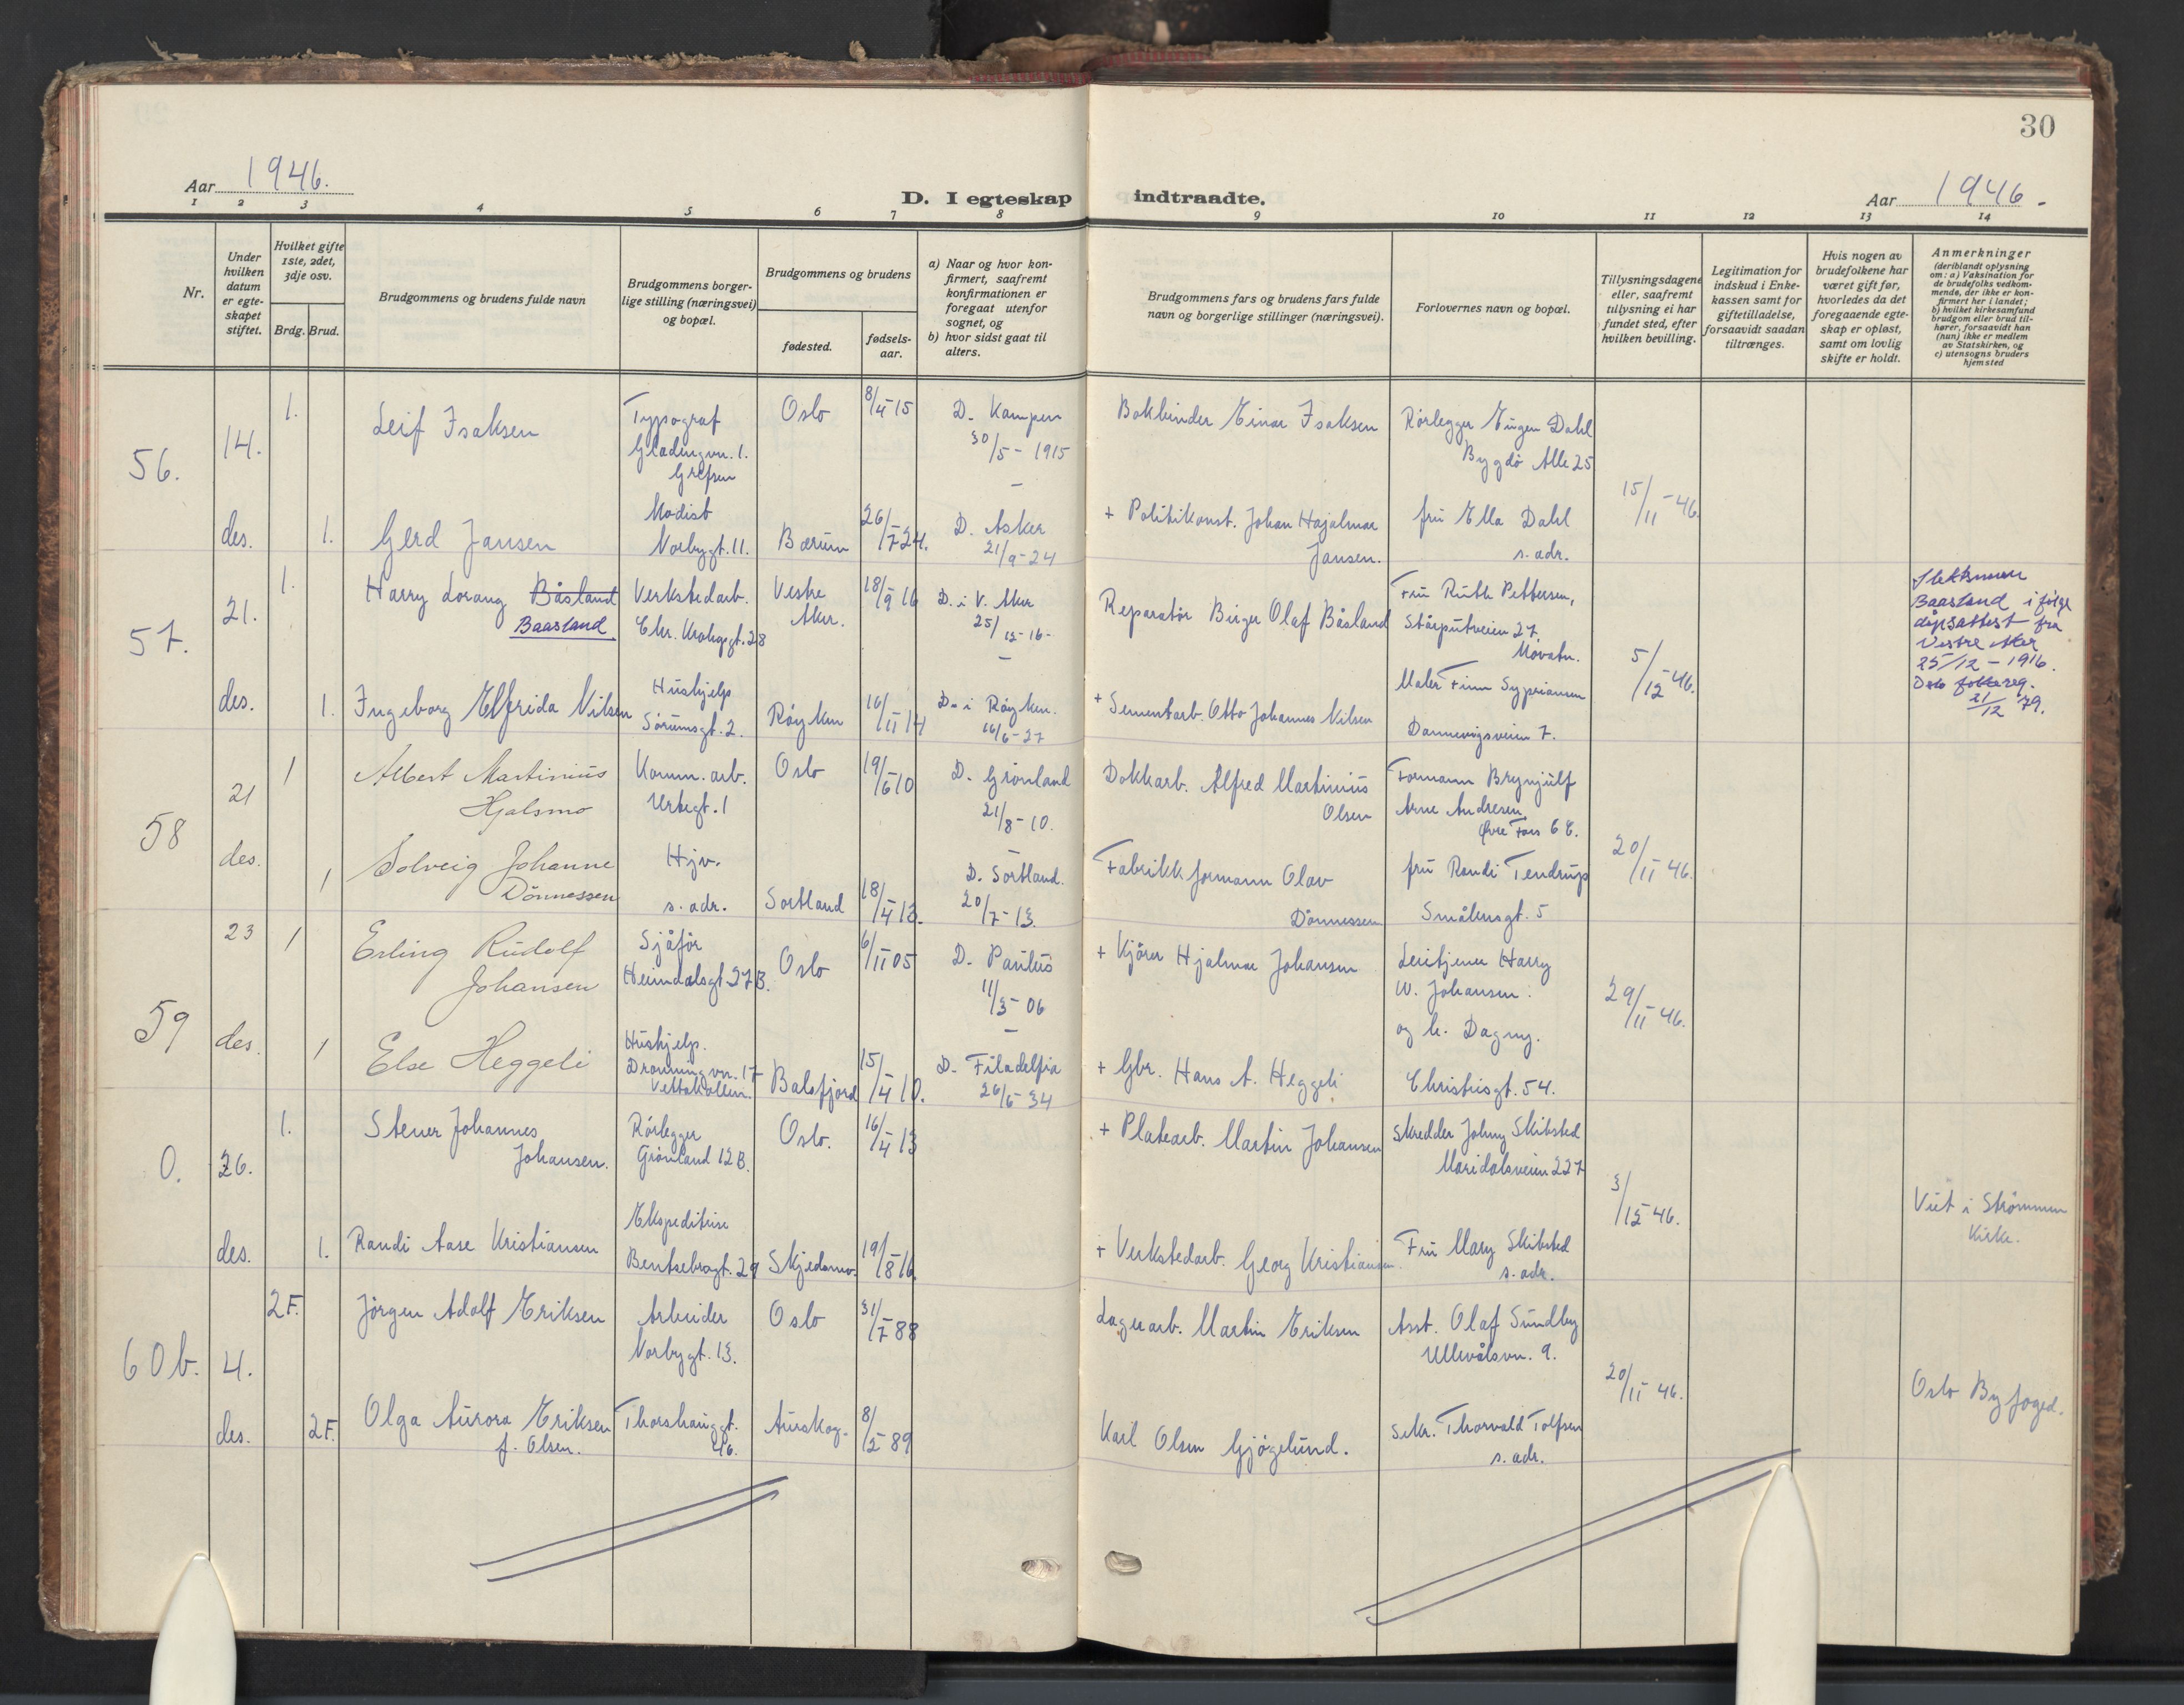 30
Aar 1946.
D. I egteskap indtraadte.
Aar 1946.
1 2 3 4 5 6 7 8 9 10 11 12 13 14
Nr.
Under hvilken datum er egteskapet stiftet.
Hvilket gifte 1ste, 2det, 3dje osv.
Brdg. Brud.
Brudgommens og brudens fulde navn
Brudgommens borgerlige stilling (næringsvei) og bopæl.
Brudgommens og brudens
fødested.
fødselsaar.
a) Naar og hvor konfirmert, saafremt konfirmationen er foregaat utenfor sognet, og
b) hvor sidst gaat til alters.
Brudgommens fars og brudens fars fulde navn og borgerlige stillinger (næringsvei).
Forlovernes navn og bopæl.
Tillysningsdagene eller, saafremt tillysning ei har fundet sted, efter hvilken bevilling.
Legitimation for indskud i Enkekassen samt for giftetilladelse, forsaavidt saadan tiltrænges.
Hvis nogen av brudefolkene har været gift før, hvorledes da det foregaaende egteskap er opløst, samt om lovlig skifte er holdt.
Anmerkninger
(deriblandt oplysning om: a) Vaksination for de brudefolks vedkommende, der ikke er konfirmert her i landet;
b) hvilket kirkesamfund brudgom eller brud tilhører, forsaavidt han (hun) ikke er medlem av Statskirken, og
c) utensogns bruders hjemsted
56.
14. 1. Leif Isaksen
Typograf
Grefsen
Oslo 8/4-15
D. Kampen
30/5-1915
Bokbinder Einar Isaksen
Rørlegger Eugen Dahl
Bygdø Alle 25
15/11-46.
des. 1. Gerd Jansen
Modist
Norbygt. 11.
Bærum 26/7-24.
D. Asker
21/9-24
+ Politikonst. Johan Hajalmar
Jansen.
fru Ella Dahl
s. adr.
57.
21. 1. Harry Lorang Båsland
Baasland
Verkstedarb.
Chr. Krohgsgt. 28
Vestre
Aker.
18/9 16
D. i V. Aker
25/12-16-
Reparatør Birger Olaf Båsland
Fru Ruth Pettersen,
Stårputveien 27.
Movatn.
5/12-46.
Slektsnavn
Baasland i følge
dåpsattest fra
Vestre Aker
25/12-1916.
Oslo folkereg.
21/12 79.
des. 1. Ingeborg Elfrida Nilsen
Hushjelp
Sørumsgt. 2.
Røyken 16/11 14
D. i Røyken.
16/6-27
+ Sementarb. Otto Johannes Nilsen
Maler Finn Sypriansen
Dannevigsveien 7.
58
21 1 Albert Martinius
Hjalsmo
Komm. arb.
Urtegt. 1
Oslo 19/6 10
D. Grønland
21/8-10.
Dokkarb. Alfred Martinius
Olsen
Formann Brynjulf
Arne Andresen
Øvre Foss 6 E.
20/11-46.
des. 1 Solveig Johanne
Dønnessen
Hjv.
s. adr.
Sortland 18/4 13.
D. Sortland.
20/7-13.
Fabrikkformann Olav
Dønnessen
fru Randi Tendrup
Smålensgt. 5
59
23 1 Erling Rudolf
Johansen
Sjåfør
Heimdalsgt. 27 B.
Oslo 6/11 05
D. Paulus
11/3-06
+ Kjører Hjalmar Johansen
Harry
W. Johansen.
og h. Dagny.
29/11-46.
des. 1 Else Heggeli
Hushjelp.
Dronningvn. 17
Vettakollen.
Balsfjord 15/4 10.
D. Filadelfia
26/6-34
+ Gbr. Hans A. Heggeli
Christiesgt. 54.
0.
26. 1. Stener Johannes
Johansen.
Rørlegger
Grønland 12 B.
Oslo. 16/4 13
+ Platearb. Martin Johansen
Skredder Johny Skibsted
Maridalsveien 227
3/12-46.
Viet i Strømmen
Kirke.
des. 1. Randi Aase Kristiansen
Ekspeditrise
Bentsebrogt. 29
Skjedsmo. 19/8 16.
+ Verkstedarb. Georg Kristiansen.
Fru Mary Skibsted
s. adr.
60b.
4. 2F. Jørgen Adolf Eriksen
Arbeider
Norbygt. 13.
Oslo 31/7 88
Lagerarb. Martin Eriksen
Asst. Olaf Sundby
Ullevålsvn. 9.
20/11-46.
Oslo Byfoged.
des. 2F. Olga Aurora Eriksen
f. Olsen.
Thorshauggt.
46.
Aurskog. 8/2-89
Karl Olsen Gjøgelund.
Sekr. Thorvald Tolfsen
s. adr.